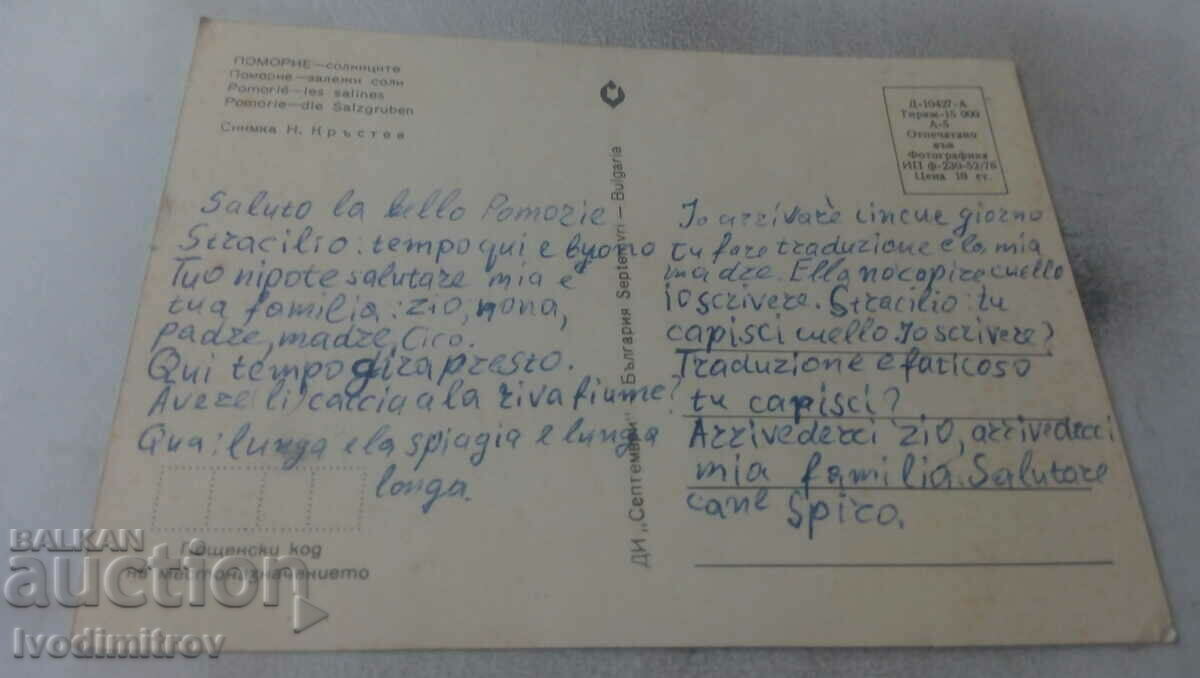 ПОМОРИЕ—солниците
Поморие—залежи соли
Pomorié—les salines
Pomorie—die Salzgruben
Снимка Н. Кръстев
Saluto la bello Pomorie
Stracilio: tempo qui e buono
Tuo nipote salutare mia e
tua familia: zio, nona,
padre, madre, Cico.
Qui tempo gira presto.
Avere (li) calcia a la riva fiume?
Qua: lunga e la spiagia e lunga
longa.
Пощенски код
на местоназначението
ДИ „Септември" България Septemvri — Bulgaria
Д-10427-А
Тираж-15 000
А-5
Отпечатано
във
Фотографика
ИП ф-230-52/76
Цена 10 ст.
Io arrivarè cincue giorno
tu fare traduzione e la mia
madre. Ella no capire cuello
io scrivere. Stracilio: tu
capisci cuello Io scrivere?
Traduzione e faticoso
tu capisci?
Arrivederci zio, arrivederci
mia familia. Salutare
cane Spico.
BALKAN
auction
Ivodimitrov